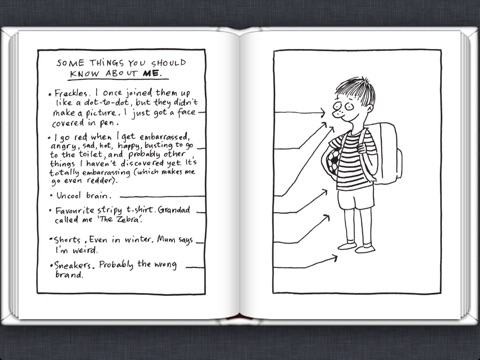 SOME THINGS YOU SHOULD
KNOW ABOUT ME.
• Freckles. I once joined them up
like a dot-to-dot, but they didn't
make a picture. I just got a face
covered in pen.
• I go red when I get embarrassed,
angry, sad, hot, happy, busting to go
to the toilet, and probably other
things I haven't discovered yet. It's
totally embarrassing (which makes me
go even redder).
• Uncool brain.
• Favourite stripy t-shirt. Grandad
called me 'The Zebra'.
• Shorts. Even in winter. Mum says
I'm weird.
• Sneakers. Probably the wrong
brand.